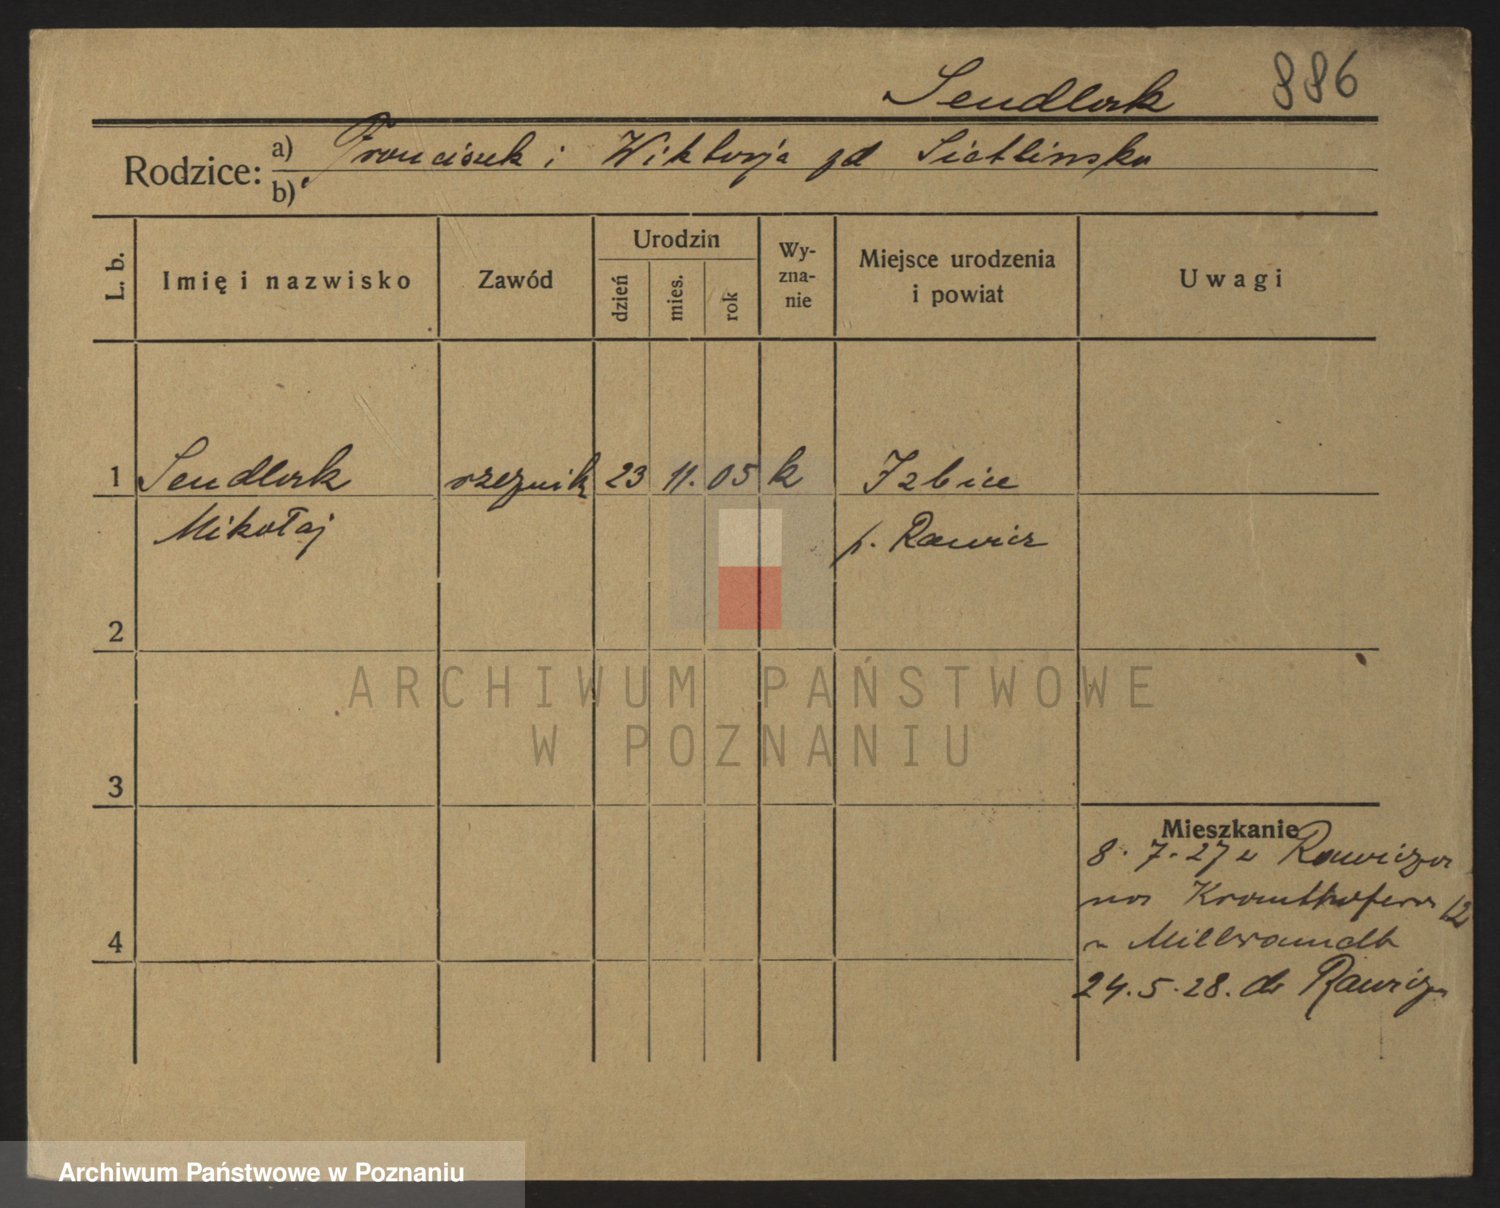 Sendlak 886
Rodzice: a) Franciszek i Wiktorja zd
b)
L. b. Imię i nazwisko Zawód Urodzin dzień mies. rok Wy-zna-nie Miejsce urodzenia i powiat Uwagi
1 Sendlak rzeznik 23 11. 05 k Izbice
Mikołaj p. Rawicz
2
ARCHIWUM PAŃSTWOWE
W POZNANIU
3
Mieszkanie
8. 7. 27 z Rawicza
12
4
24. 5. 28. do Rawicza
Archiwum Państwowe w Poznaniu